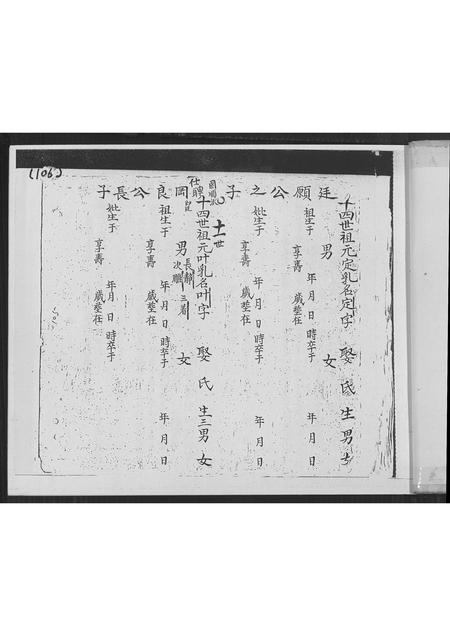 (106)
十四世祖元定乳名定字 娶 氏 生 男 女
廷願公之子
男 女
祖生于 年 月 日 時卒于 年 月 日
享壽 歲塟在
妣生于 年 月 日 時卒于 年 月 日
享壽 歲塟在
十四世祖元叶乳名叶字 娶 氏 生三男 女
岡良公長子
男 長靜 次雕 三着 女
祖生于 年 月 日 時卒于 年 月 日
享壽 歲塟在
妣生于 年 月 日 時卒于
享壽 歲塟在